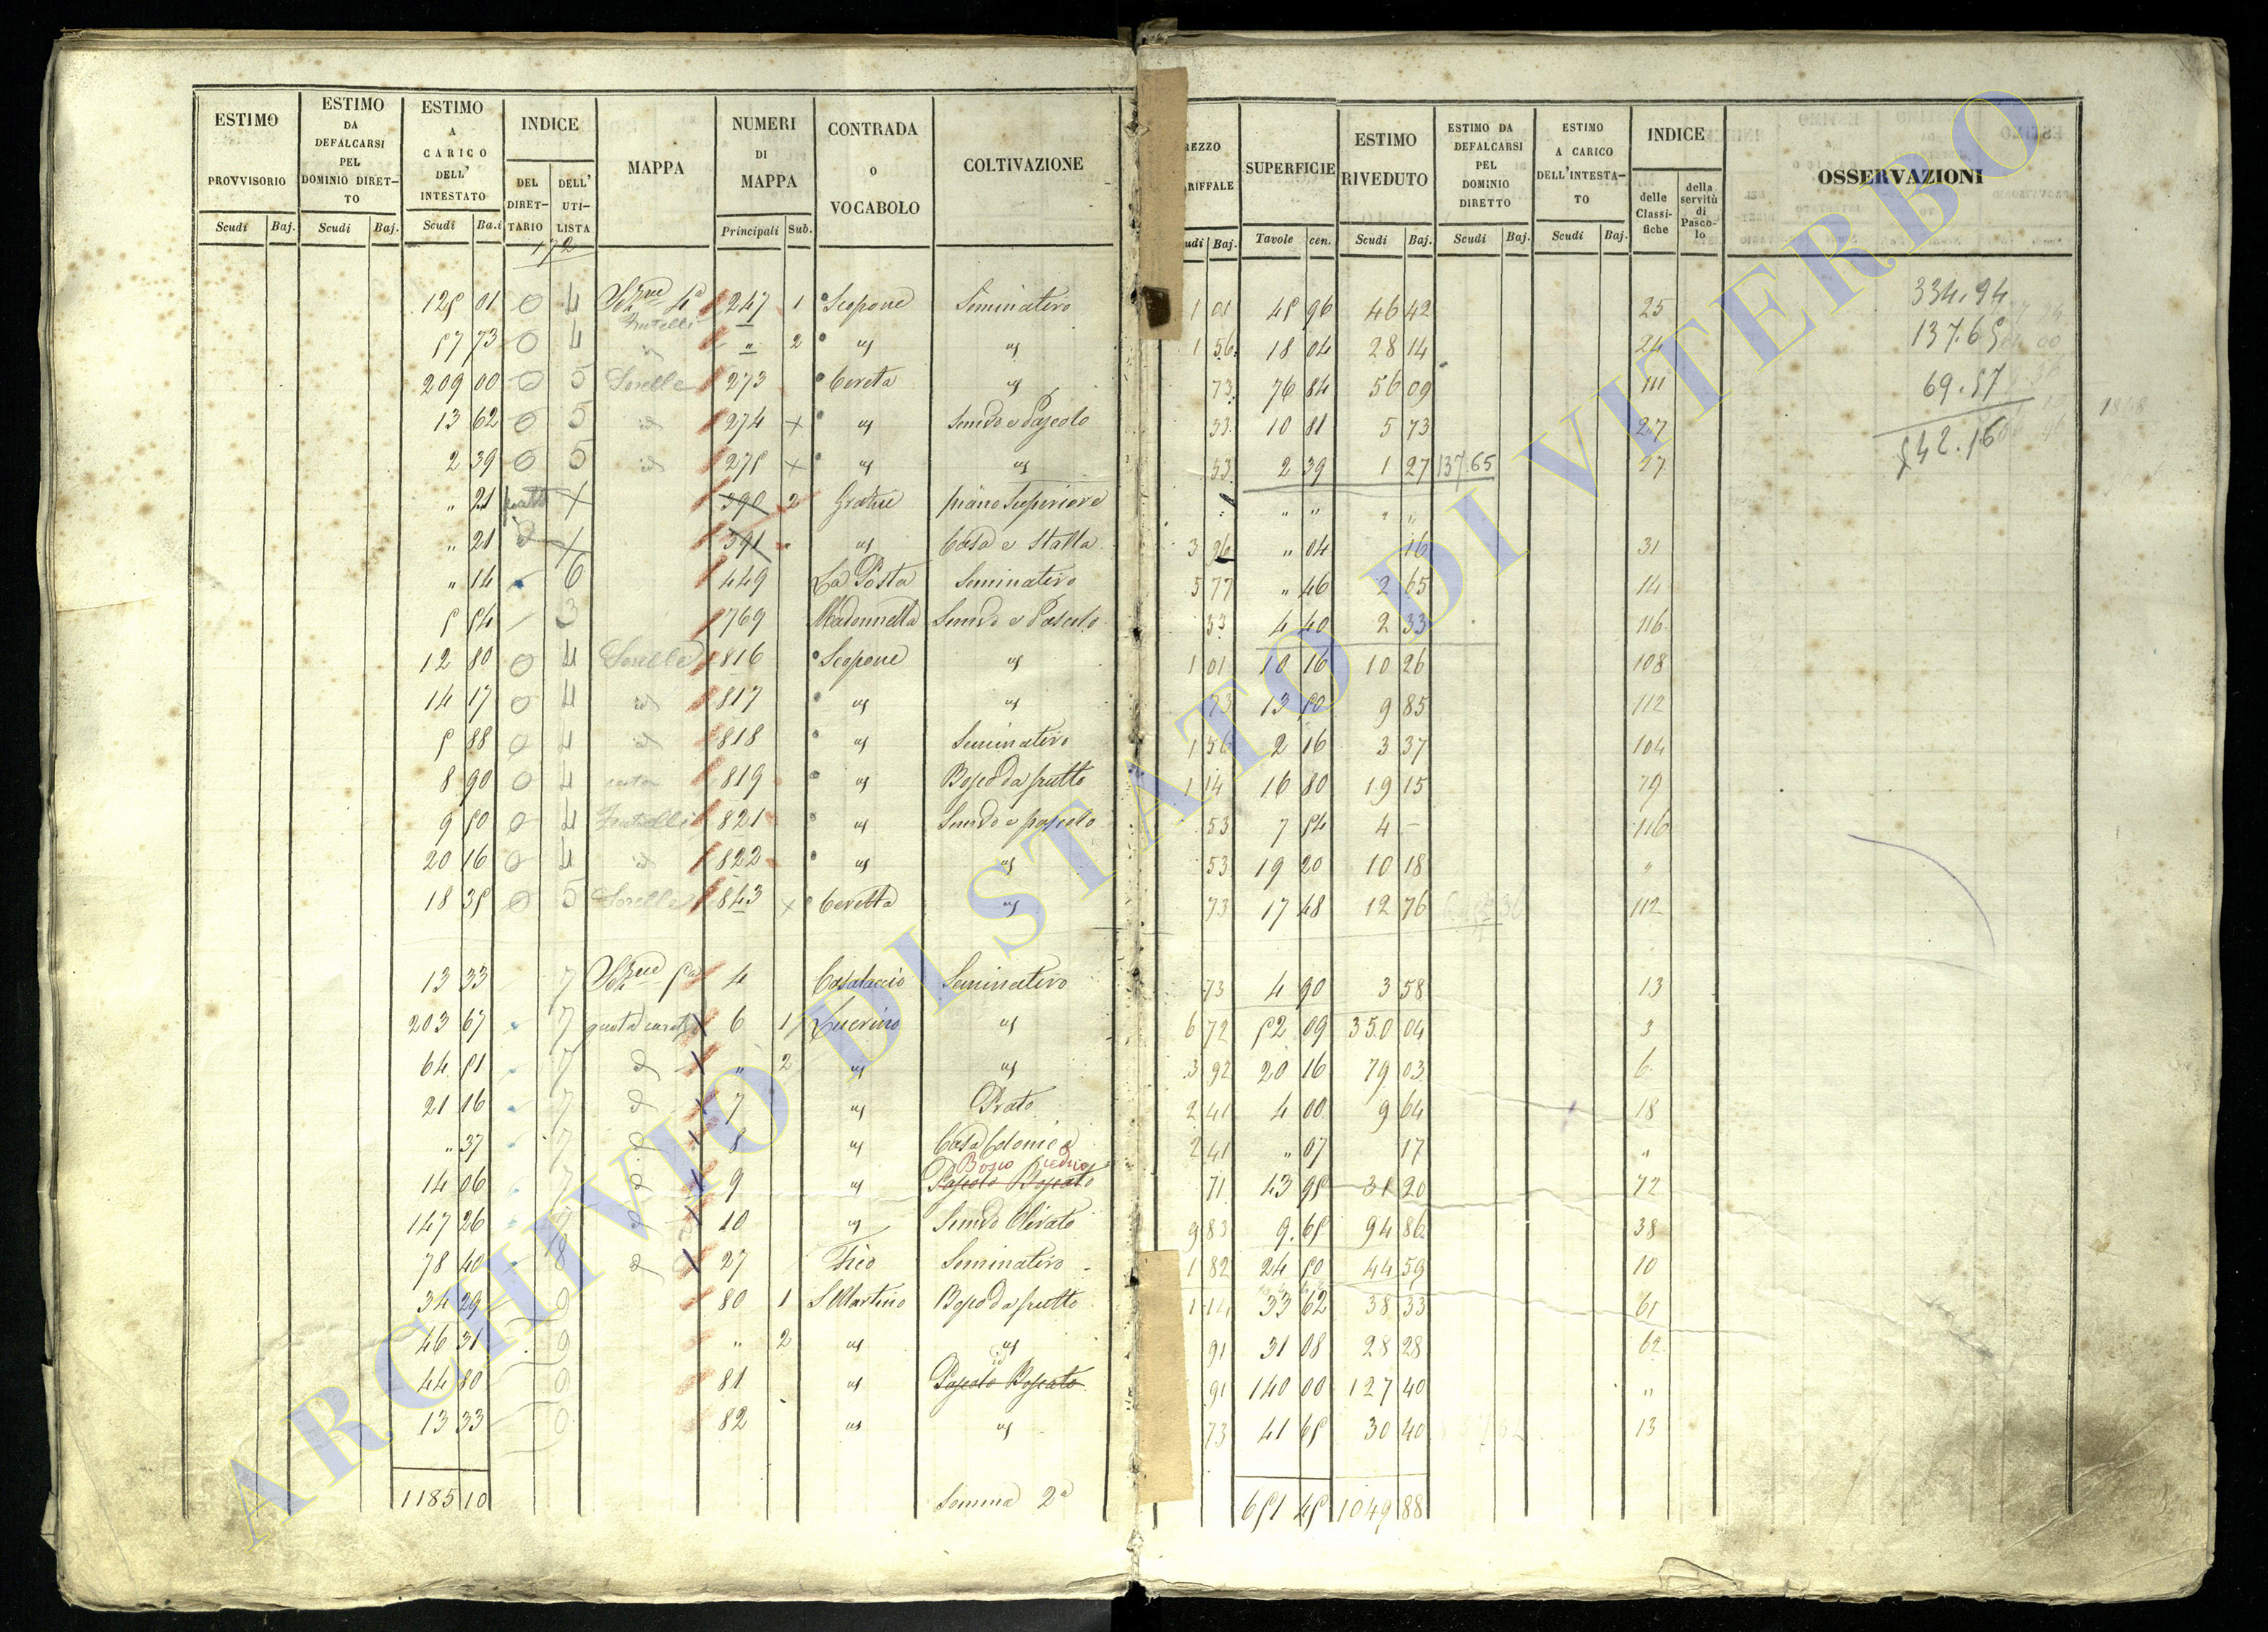 ESTIMO PROVVISORIO Scudi Baj. ESTIMO DA DEFALCARSI PEL DOMINIO DIRETTO Scudi Baj. ESTIMO A CARICO DELL' INTESTATO Scudi Ba.i INDICE DEL DIRETTARIO DELL' UTILISTA MAPPA NUMERI DI MAPPA Principali Sub. CONTRADA O VOCABOLO COLTIVAZIONE
REZZO RIFFALE udi Baj. SUPERFICIE Tavole cen. ESTIMO RIVEDUTO Scudi Baj. ESTIMO DA DEFALCARSI PEL DOMINIO DIRETTO Scudi Baj. ESTIMO A CARICO DELL'INTESTATO Scudi Baj. INDICE delle Classifiche della servitù di Pascolo OSSERVAZIONI
172
125 01 0 4 Sez.ne 4a 247 1 Scopone Seminativo 1 01 45 96 46 42 25 334.94
Fratelli
57 73 0 4 id " 2 us us 1 56 18 04 28 14 24 137.65
209 00 0 5 Sorelle 273 Cereta us 73 76 84 56 09 111 69.57
13 62 0 5 id 274 x us Semvo e Pascolo 53 10 81 5 73 27 542.16
2 39 0 5 id 275 x us us 53 2 39 1 27 137.65 27
" 21 390 2 Grotne piano Superiore " " " "
" 21 391 us Casa e Stalla 3 96 " 04 16 31
" 14 6 449 La Posta Seminativo 5 77 " 46 2 65 14
5 54 3 769 Madonnella Semvo e Pascolo 53 4 40 2 33 116
12 80 0 4 Sorelle 816 Scopone us 1 01 10 16 10 26 108
14 17 0 4 id 817 us us 73 13 50 9 85 112
5 88 0 4 id 818 us Seminativo 1 56 2 16 3 37 104
8 90 0 4 819 us Bosco da frutto 1 14 16 80 19 15 79
9 50 0 4 Fratelli 821 us Semvo e pascolo 53 7 54 4 – 116
20 16 0 4 id 822 us us 53 19 20 10 18 "
18 35 0 5 Sorelle 843 x Ceretta us 73 17 48 12 76 112
13 33 7 Sez.ne 5a 4 Casalaccio Seminativo 73 4 90 3 58 13
203 67 7 6 1 Querino us 6 72 52 09 350 04 3
64 51 7 d " 2 us us 3 92 20 16 79 03 6
21 16 7 d 7 us Prato 2 41 4 00 9 64 18
" 37 7 d 8 us Casa Colonica 2 41 " 07 17 "
Bosco Ceduo
14 06 7 d 9 us Pascolo Boscato 71 43 95 31 20 72
147 26 7 d 10 us Semvo Olivato 9 83 9.65 94 86 38
78 40 8 d 27 Fico Seminativo 1 82 24 50 44 59 10
34 29 9 80 1 S Martino Bosco da frutto 1 14 33 62 38 33 61
46 31 9 " 2 us us 91 31 08 28 28 62
id
44 80 9 81 us Pascolo Boscato 91 140 00 127 40 "
13 33 82 us us 73 41 65 30 40 13
1185 10 Somma 2a 651 45 1049 88
ARCHIVIO DI STATO DI VITERBO